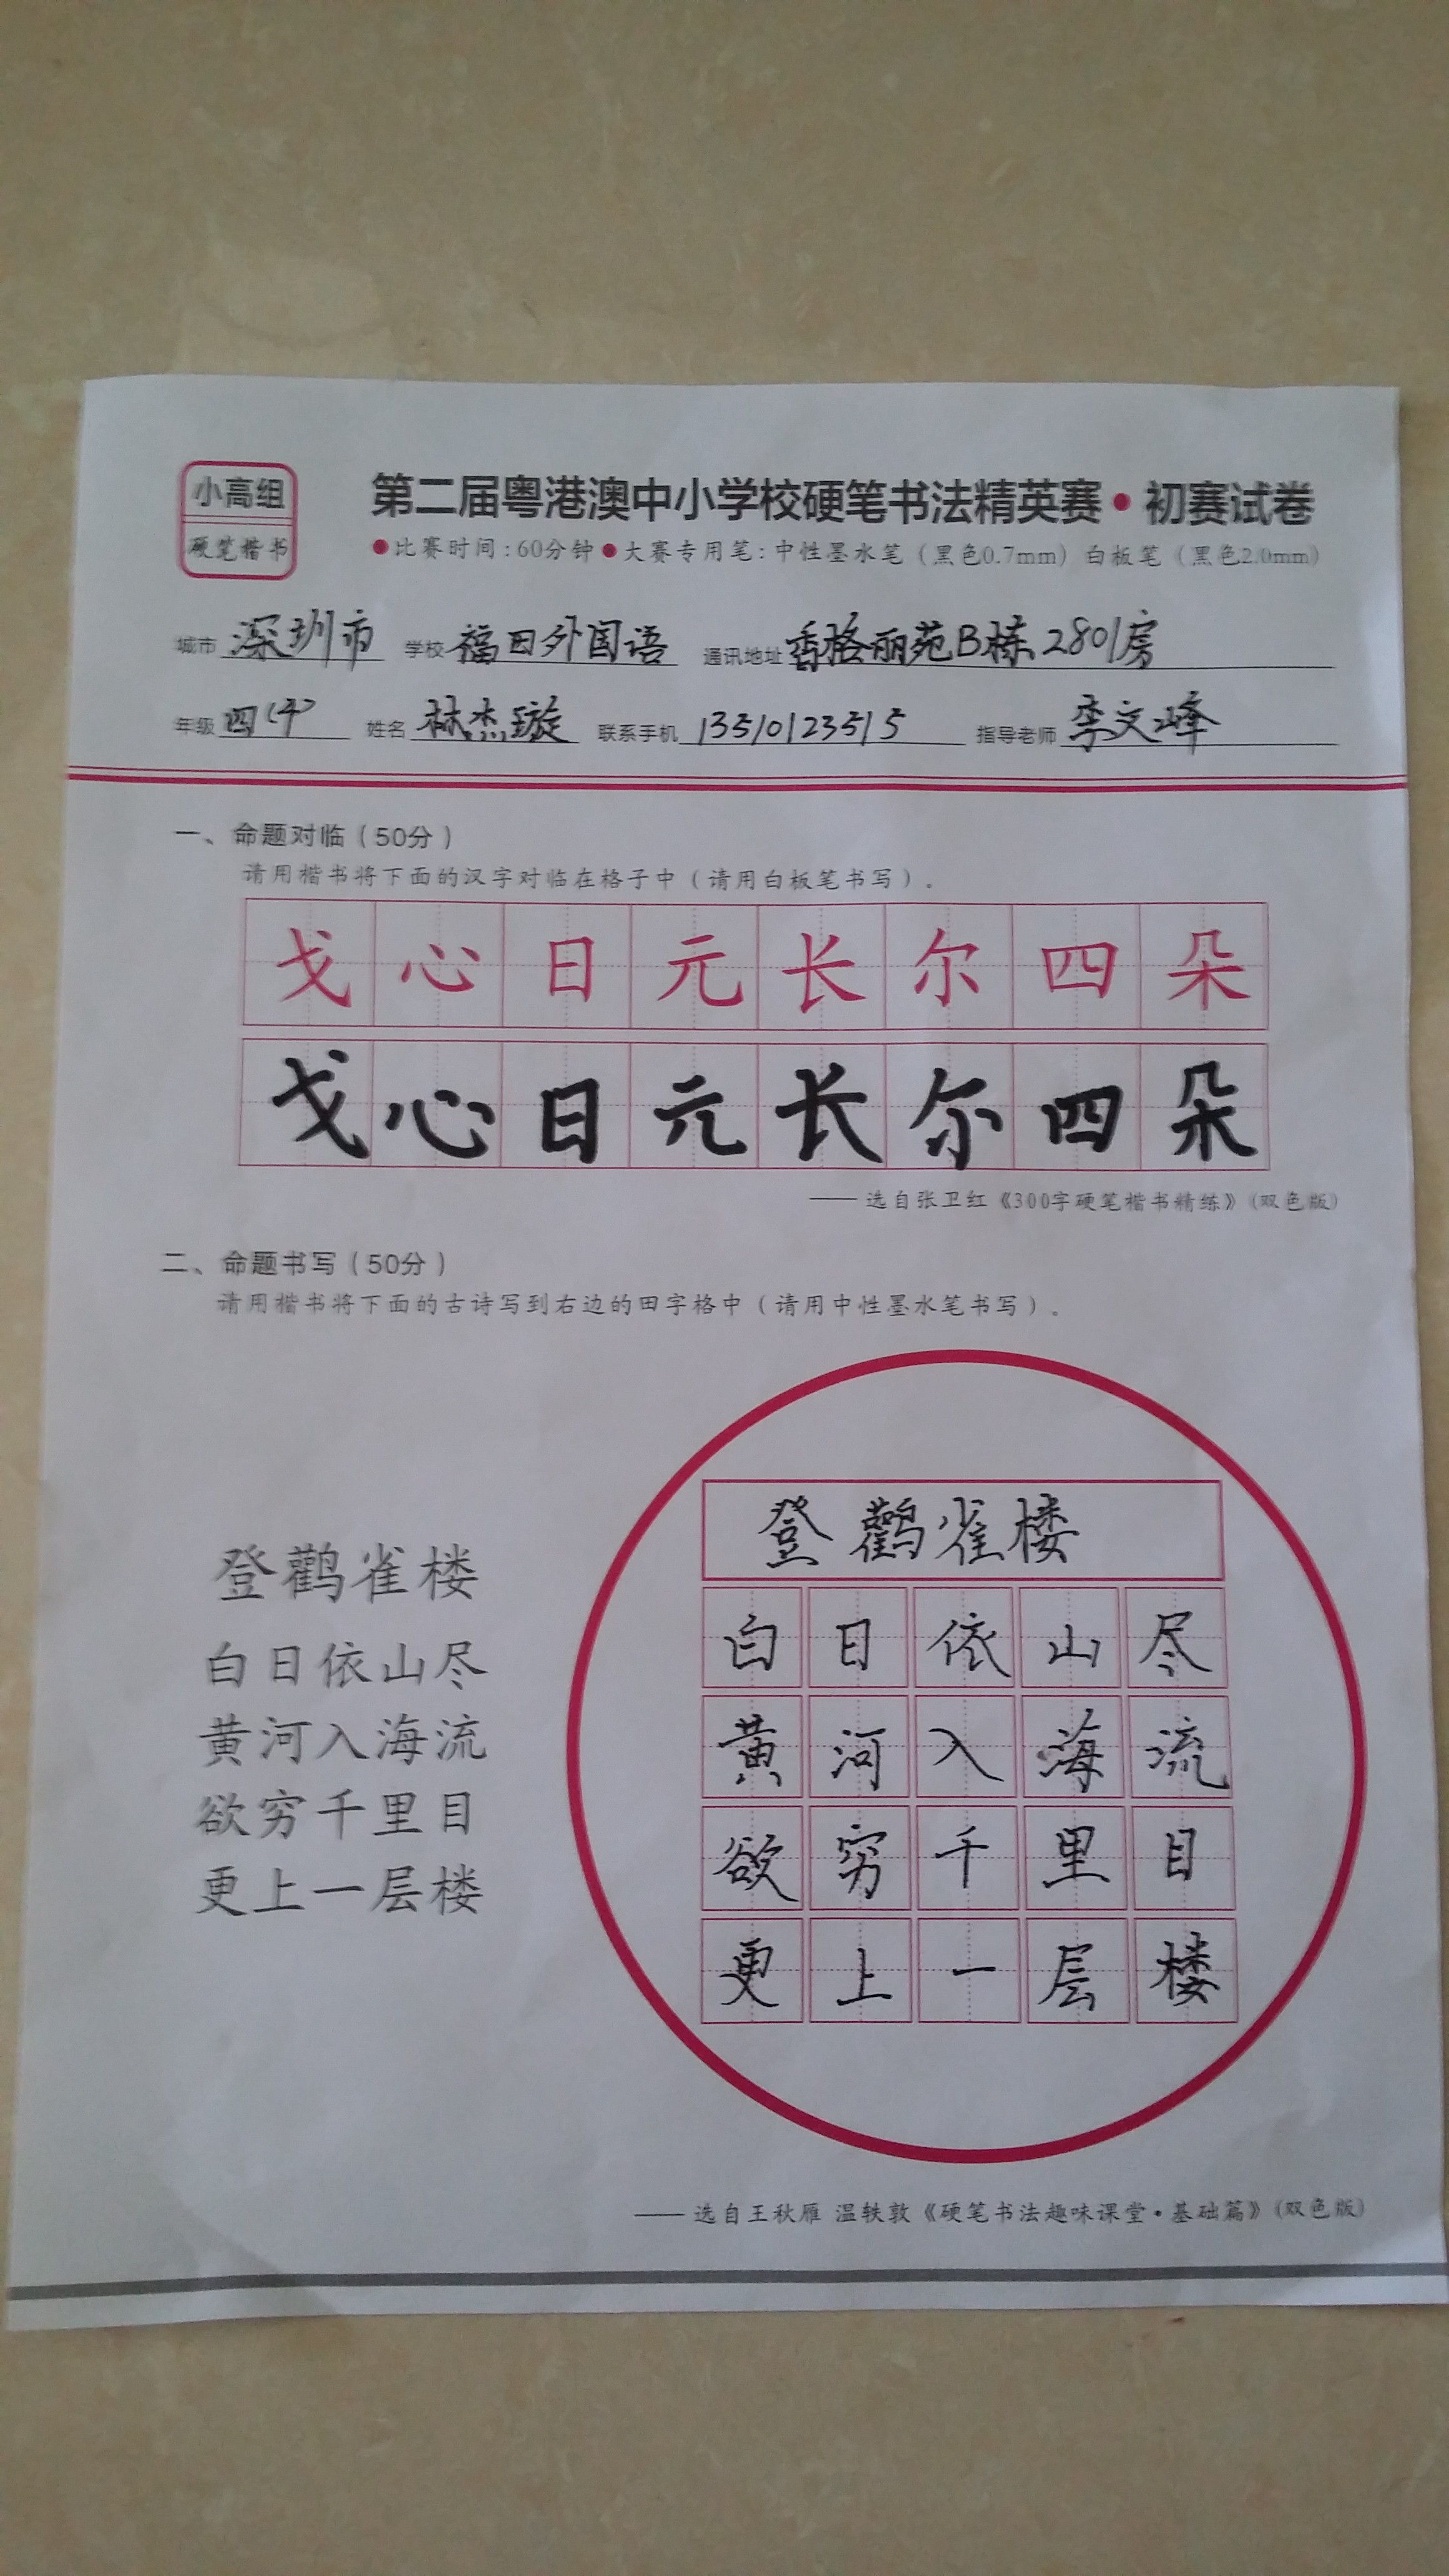 小高组
硬笔楷书
第二届粤港澳中小学校硬笔书法精英赛•初赛试卷
●比赛时间:60分钟●大赛专用笔:中性墨水笔(黑色0.7mm)白板笔(黑色2.0mm)
城市 深圳市 学校 福田外国语 通讯地址 香格丽苑B栋2801房
年级 四(4) 姓名 林杰璇 联系手机 13510123515 指导老师 李文峰
一、命题对临(50分)
请用楷书将下面的汉字对临在格子中(请用白板笔书写)。
戈心日元长尔四朵
戈心日元长尔四朵
—— 选自张卫红《300字硬笔楷书精练》(双色版)
二、命题书写(50分)
请用楷书将下面的古诗写到右边的田字格中(请用中性墨水笔书写)。
登鹳雀楼
白日依山尽
黄河入海流
欲穷千里目
更上一层楼
登鹳雀楼
白日依山尽
黄河入海流
欲穷千里目
更上一层楼
—— 选自王秋雁 温轶敦《硬笔书法趣味课堂•基础篇》(双色版)